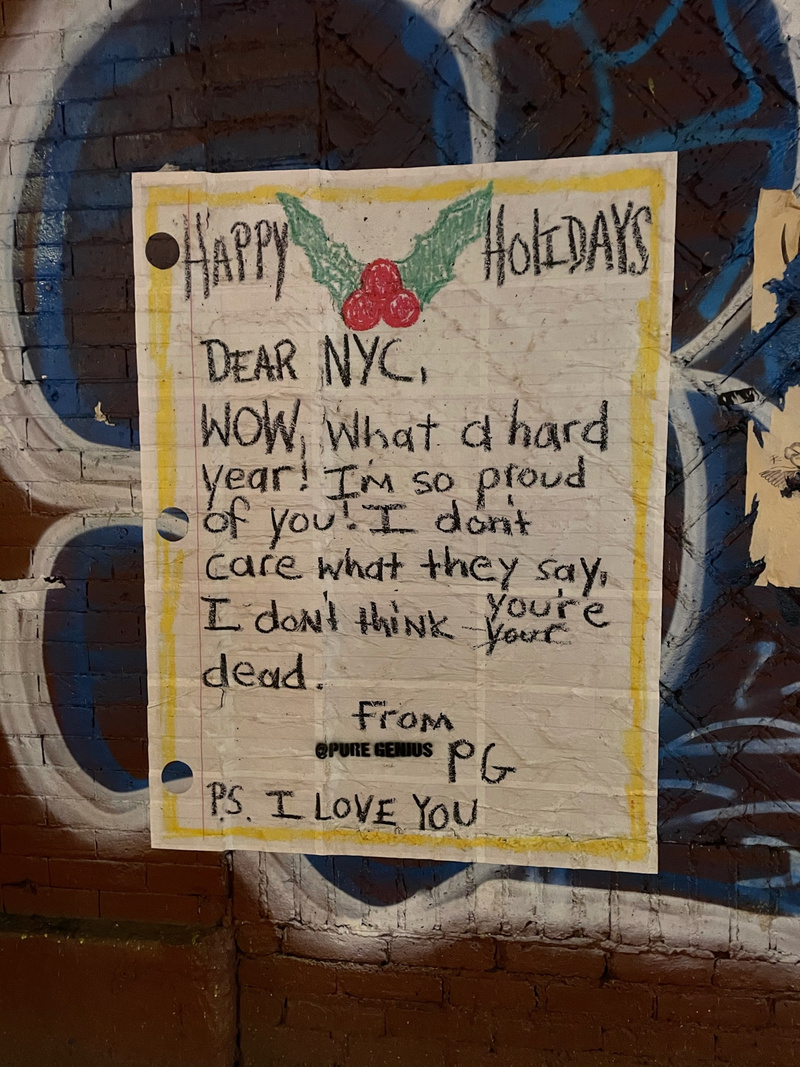 HAPPY HOLIDAYS
DEAR NYC,
WOW, What a hard
year! I'm so proud
of you! I don't
care what they say,
I don't think you're
your
dead.
From
@PURE GENIUS PG
P.S. I LOVE YOU